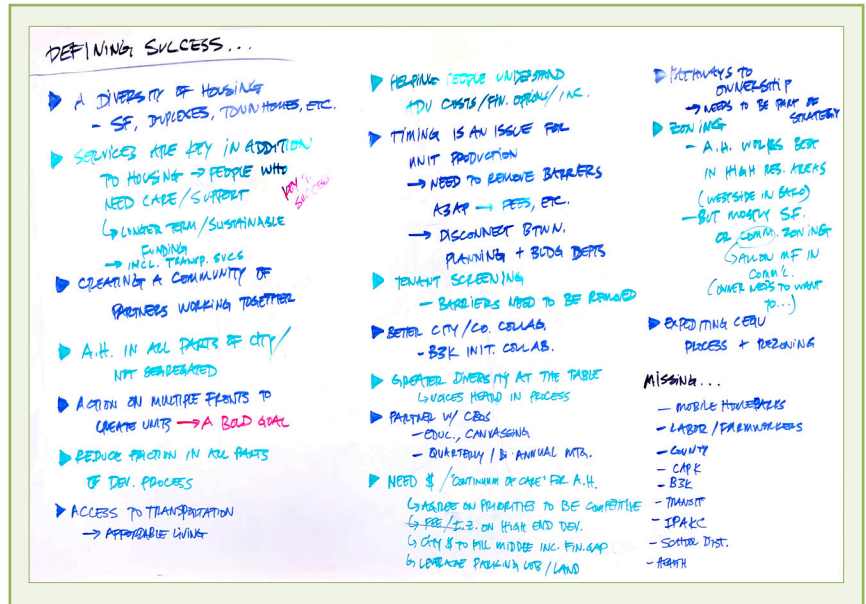 DEFINING SUCCESS...
A DIVERSITY OF HOUSING
- SF, DUPLEXES, TOWNHOMES, ETC.
SERVICES ARE KEY IN ADDITION
TO HOUSING → PEOPLE WHO
NEED CARE/SUPPORT
KEY TO SUCCESS
↳ LONGER TERM/SUSTAINABLE
FUNDING
→ INCL. TRANSP. SVCS
CREATING A COMMUNITY OF
PARTNERS WORKING TOGETHER
A.H. IN ALL PARTS OF CITY/
NOT SEGREGATED
ACTION ON MULTIPLE FRONTS TO
CREATE UNITS → A BOLD GOAL
REDUCE FRICTION IN ALL PARTS
OF DEV. PROCESS
ACCESS TO TRANSPORTATION
→ AFFORDABLE LIVING
HELPING PEOPLE UNDERSTAND
ADU COSTS/FIN. OPTIONS/INC.
TIMING IS AN ISSUE FOR
UNIT PRODUCTION
→ NEED TO REMOVE BARRIERS
ASAP → FEES, ETC.
→ DISCONNECT BTWN.
PLANNING + BLDG DEPTS
TENANT SCREENING
- BARRIERS NEED TO BE REMOVED
BETTER CITY/CO. COLLAB.
- B3K INIT. COLLAB.
GREATER DIVERSITY AT THE TABLE
↳ VOICES HEARD IN PROCESS
PARTNER W/ CBOS
- EDUC., CANVASSING
- QUARTERLY/BI-ANNUAL MTG.
NEED $/"CONTINUUM OF CARE" FOR A.H.
↳ AGREE ON PRIORITIES TO BE COMPETITIVE
↳ FEE/I.Z. ON HIGH END DEV.
↳ CITY $ TO FILL MIDDLE INC. FIN. GAP
↳ LEVERAGE PARKING LOTS/LAND
PATHWAYS TO
OWNERSHIP
→ NEEDS TO BE PART OF
STRATEGY
ZONING
- A.H. WORKS BEST
IN HIGH RES. AREAS
(WESTSIDE IN BAKO)
- BUT MOSTLY S.F.
OR COMM. ZONING
↳ ALLOW MF IN
COMM'L.
(OWNER NEEDS TO WANT
TO...)
EXPEDITING CEQU
PROCESS + REZONING
MISSING...
- MOBILE HOMEPARKS
- LABOR/FARMWORKERS
- COUNTY
- CAPK
- B3K
- TRANSIT
- IPAKC
- SCHOOL DIST.
- HEALTH